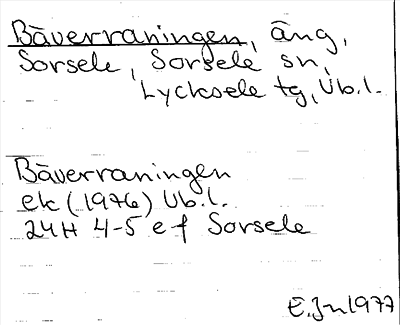 Bäverraningen, äng,
Sorsele, Sorsele sn,
Lycksele tg, Vb.l.
Bäverraningen
ek (1976) Vb.l.
24H 4-5 e f Sorsele
E.Jn 1977